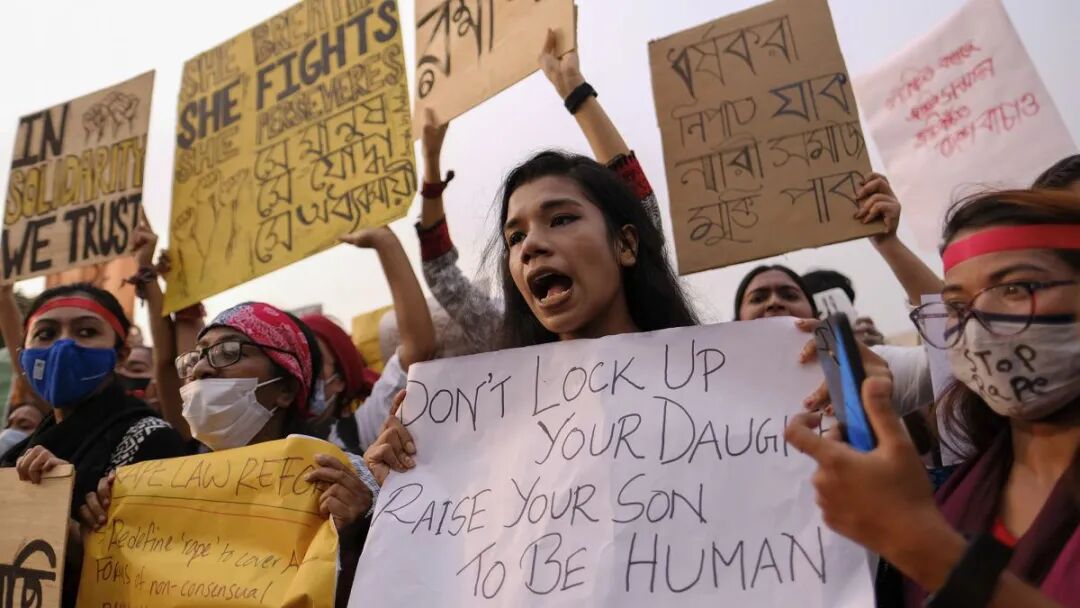 IN
SOLIDARITY
WE TRUST
SHE
SHE FIGHTS
SHE PERSEMERES
সে মানুষ
সে যোদ্ধা
সে অধ্যবসায়ী
ধর্ষকরা
নিপাত যাক
নারী সমাজ
মুক্তি পাক
বাঁচাও
DON'T LOCK UP
YOUR DAUGH
RAISE YOUR SON
TO BE HUMAN
RAPE LAW REFO
Redefine 'rape' to cover A
FORMS of non-consensual
STOP
Rape